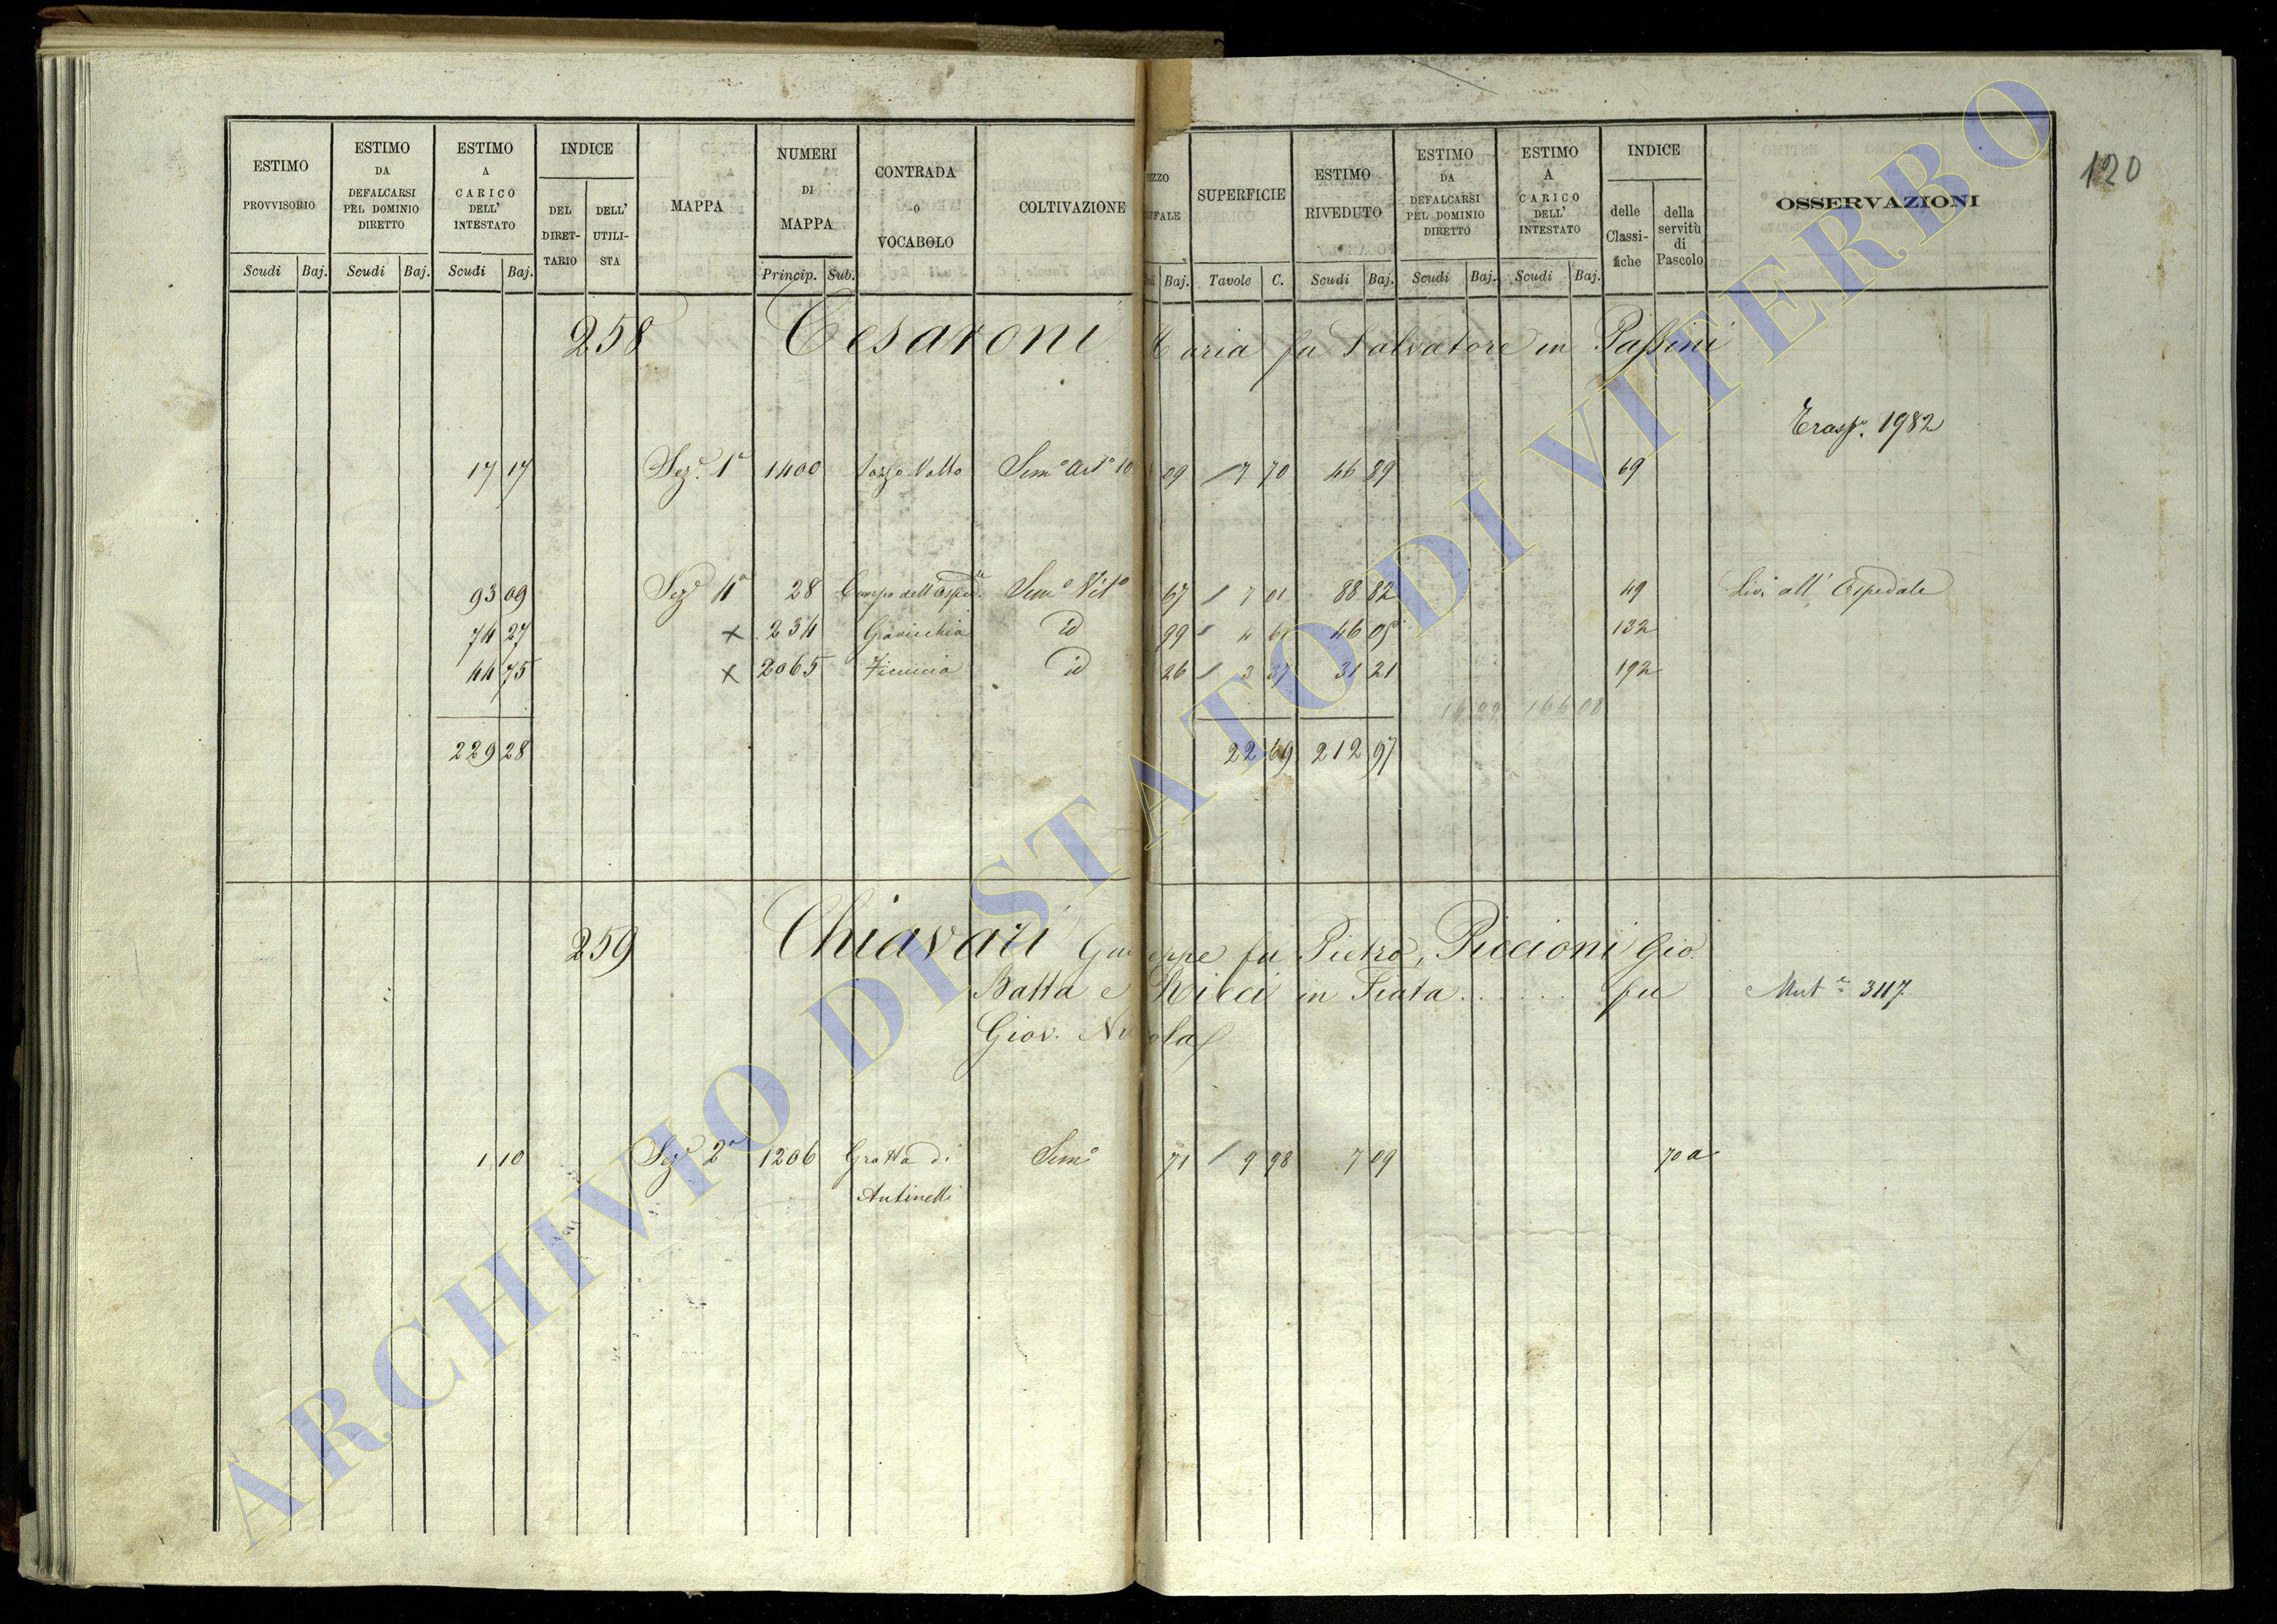 120
ESTIMO PROVVISORIO Scudi Baj.
ESTIMO DA DEFALCARSI PEL DOMINIO DIRETTO Scudi Baj.
ESTIMO A CARICO DELL' INTESTATO Scudi Baj.
INDICE DEL DIRET-TARIO DELL' UTILI-STA
MAPPA
NUMERI DI MAPPA Princip. Sub.
CONTRADA O VOCABOLO
COLTIVAZIONE
Baj.
SUPERFICIE Tavole C.
ESTIMO RIVEDUTO Scudi Baj.
ESTIMO DA DEFALCARSI PEL DOMINIO DIRETTO Scudi Baj.
ESTIMO A CARICO DELL' INTESTATO Scudi Baj.
INDICE delle Classi-fiche della servitù di Pascolo
OSSERVAZIONI
258 Cesaroni Maria fu Salvatore in Passini
1982
17 17 Sez.e 1a 1400 Semo Arto 09 7 70 46 89 69
93 09 Sez.e 4a 28 Campo dell' Sem.o Vit.o 67 7 01 88 82 49 Liv. all' Ospedale
74 27 x 234 id 99 4 61 46 05 132
44 75 x 2065 id 26 3 37 31 21 192
166 08
229 28 22 69 212 97
259 Chiavari Giuseppe fu Pietro, Piccioni Gio.
Batta e Ricci in Fiata ...... fu Mut.e 3117
Giov. Nicola
1 10 Sez.e 2a 1206 Grotta di Sem.o 71 9 98 7 09 70 a
Antinelli
ARCHIVIO DI STATO DI VITERBO